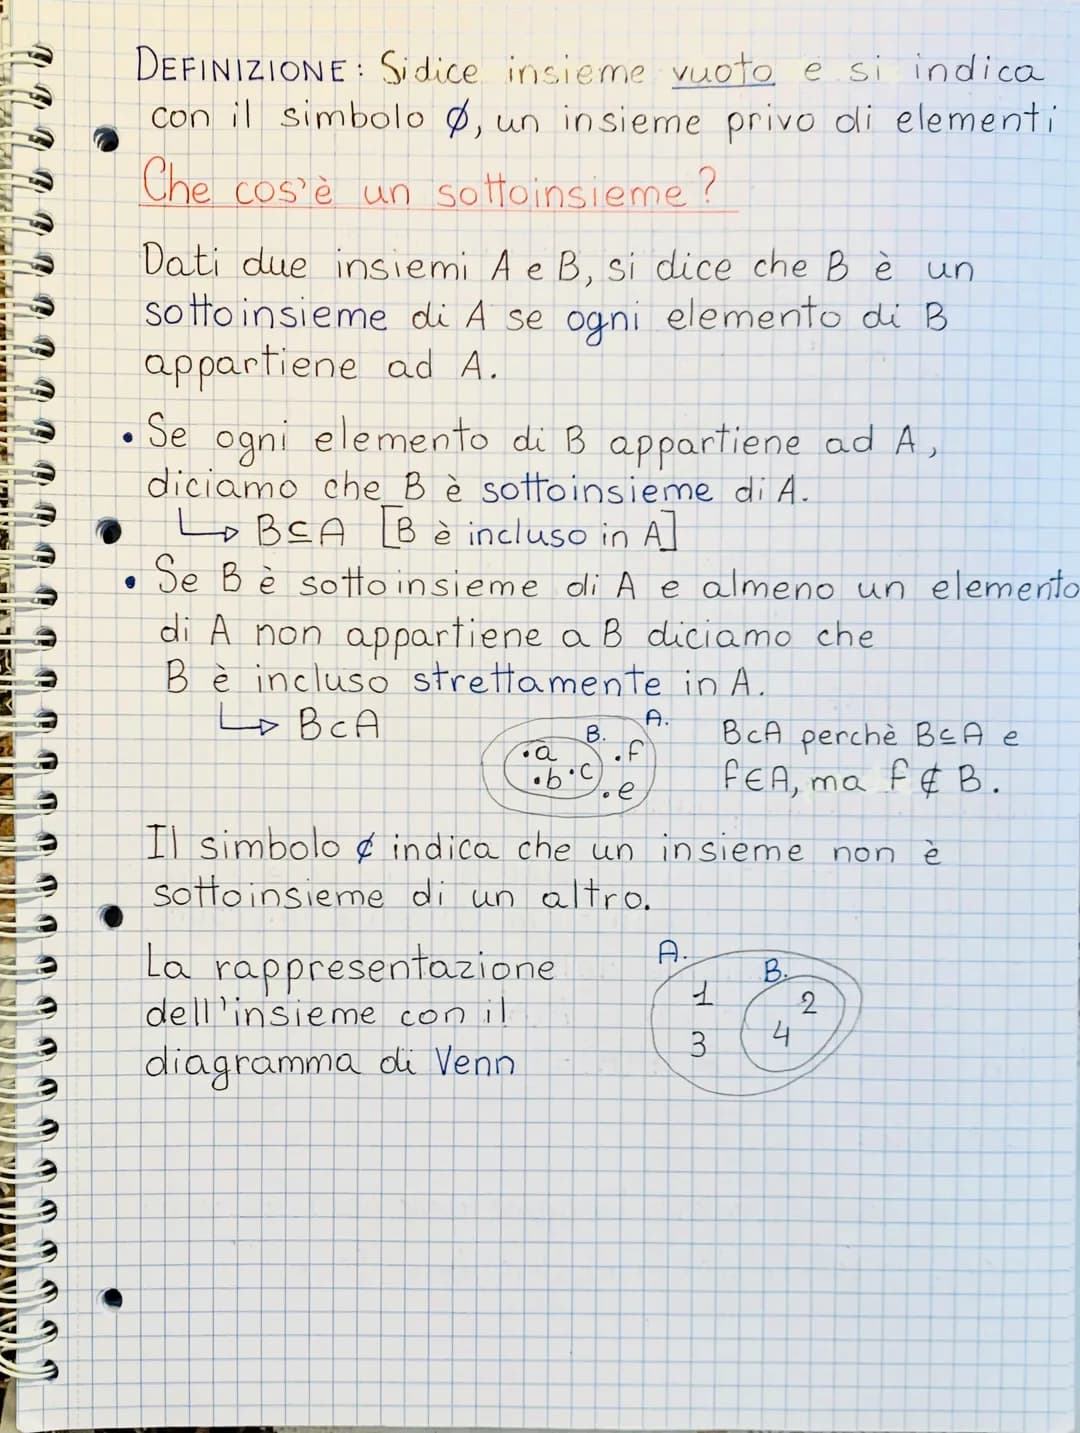 DEFINIZIONE: Si dice insieme vuoto e si indica
con il simbolo ∅, un insieme privo di elementi
Che cos'è un sottoinsieme?
Dati due insiemi A e B, si dice che B è un
sottoinsieme di A se ogni elemento di B
appartiene ad A.
• Se ogni elemento di B appartiene ad A,
diciamo che B è sottoinsieme di A.
↳ B⊆A [B è incluso in A]
• Se B è sottoinsieme di A e almeno un elemento
di A non appartiene a B diciamo che
B è incluso strettamente in A.
↳ B⊂A
A.
B.
•a
•f
•b •c
•e
B⊂A perchè B⊆A e
f∈A, ma f∉B.
Il simbolo ⊄ indica che un insieme non è
sottoinsieme di un altro.
La rappresentazione
dell'insieme con il
diagramma di Venn
A.
B.
1
2
3
4